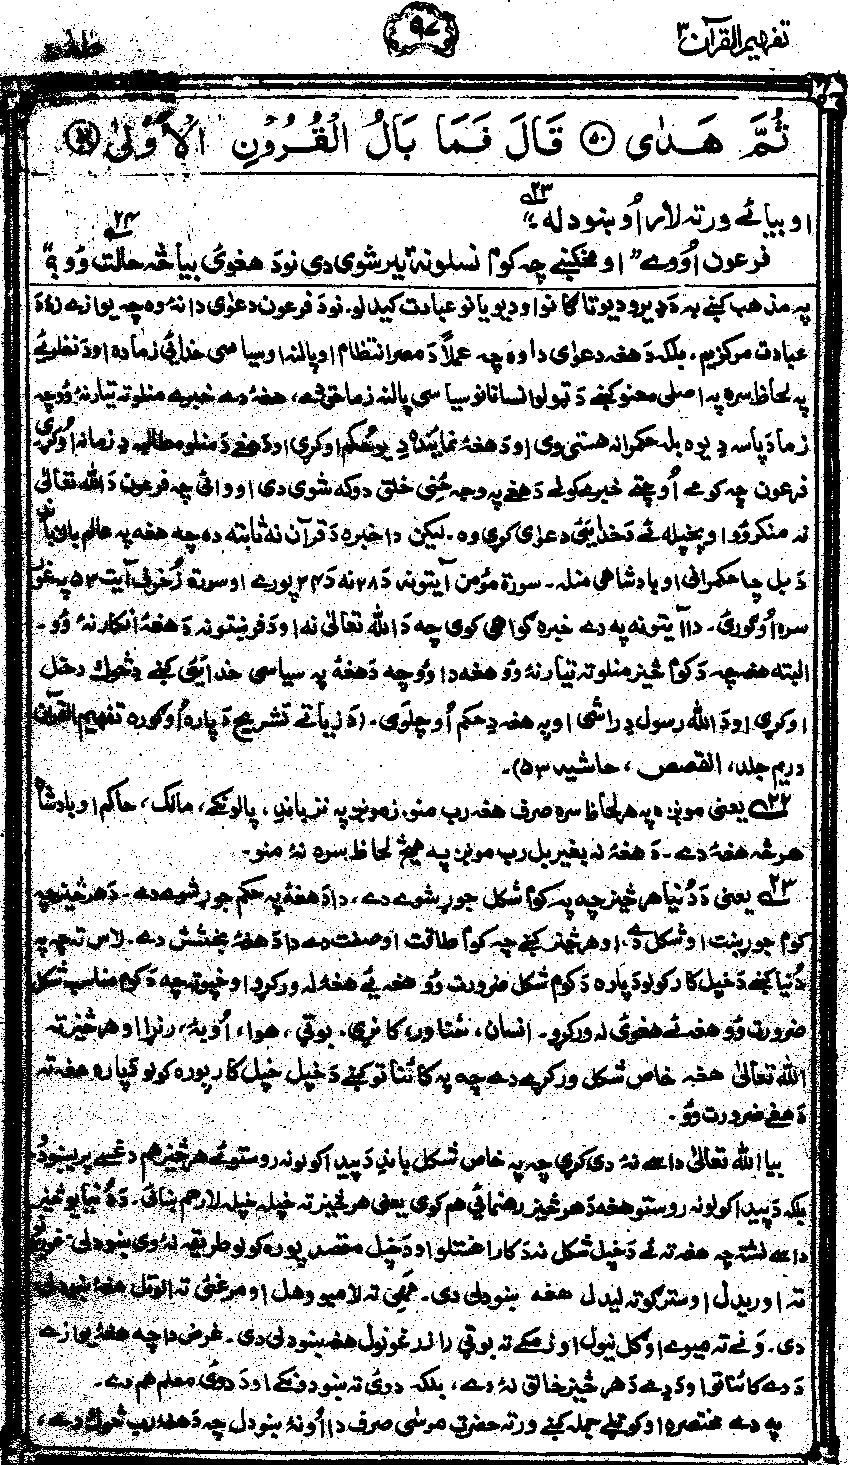 تفهیم القرآن ۳
۹۷
طٰهٰ
ثُمَّ هَـدٰى ﴿۵۰﴾ قَالَ فَـمَا بَالُ الْقُـرُوْنِ الْاُوْلٰى ﴿۵۱﴾
او بيائے ورته لار اُو ښودله ۲۳
فرعون اُووے "او مخکښے چه کوم نسلونه تير شوی دی نو د هغوی بيا څه حالت وُو ؟" ۲۴
په مذهب کښے به ډيرو ديوتاګانو او ديويانو عبادت کيدلو. نو د فرعون دعوٰی دا نۀ وه چه يوازے زۀ د
عبادت مرکز يم، بلکه د هغه دعوٰی دا وه چه عملاً د مصر انتظام او پالنه او سياسی خدائی زما ده او د نظريئے
په لحاظ سره په اصلی معنو کښے د ټولو انسانانو سياسی پالنه زما حق دے، هغه دے خبرے منلو ته تيار نۀ وُو چه
زما د پاسه دِ يوه بله حکمرانه هستی وی او د هغۀ نمائنده دِ يو حکم اوکړی او د هغے د منلو مطالبه دِ زما نه اُوکړی
فرعون چه کومے اُوچتے خبرے کولے د هغے په وجه ځنی خلق دوکه شوی دی او وائی چه فرعون د الله تعالیٰ
نه منکر وُو او پخپله ئے د خدايئ دعوٰی کړی وه. ليکن دا خبره د قرآن نه ثابته ده چه هغه په عالم بالا باندِ
د بل چا حکمرانی او بادشاهی منله. سورة مؤمن آيتونه د ۲۸ نه د ۳۴ پورے او سورة زُخرف آيت ۵۳ په غور
سره اُوګورئ. دا آيتونه په دے خبره ګواهی کوی چه د الله تعالیٰ نه او د فرښتو نه د هغۀ انکار نۀ وُو.
البته هغه چه د کوم څيز منلو ته تيار نۀ وُو هغه دا وُو چه د هغۀ په سياسی خدايئ کښے دِ څوک دخل
اوکړی او د الله رسول دِ راشی او په هغه دِ حکم اُوچلوی. (د زياتے تشريح دپاره اُوګوره تفهيم القرآن
دريم جلد، القصص، حاشيه ۵۳).
۲۲ يعنی مونږه په هر لحاظ سره صرف هغه رب منو. زمونږ پروردګار، پالونکے، مالک، حاکم او بادشاه
هر څه هغۀ دے. د هغۀ نه بغير بل رب مونږه په هيڅ لحاظ سره نۀ منو.
۲۳ يعنی د دُنيا هر څيز چه په کوم شکل جوړ شوے دے، دا د هغۀ په حکم جوړ شوے دے. د هر څيز چه
کوم جوړښت او شکل دے، او هر څيز کښے چه کوم طاقت او صفت دے دا د هغۀ بخشش دے. لاس ته چه په
دُنيا کښے د خپل کار کولو دپاره د کوم شکل ضرورت وُو هغه ئے هغۀ له ورکړو او خپو ته چه د کوم مناسب شکل
ضرورت وُو هغه ئے هغوی له ورکړو. انسان، څناور، کانړی، بوټی، هوا، اُوبۀ، رنړا او هر څيز ته
الله تعالیٰ هغه خاص شکل ورکړے دے چه په کائناتو کښے د خپل خپل کار پوره کولو دپاره هغه ته
د هغے ضرورت وُو.
بيا الله تعالیٰ داسے نۀ دی کړی چه په خاص شکل باندِ د پيدا کولو نه روستو ئے هر څيز هم دغسے پريښودو
بلکه د پيدا کولو نه روستو هغه د هر څيز رهنمائی هم کوی يعنی هر څيز ته خپله خپله لار هم ښائی. د دُنيا يو څيز
داسے نشته چه هغه ته ئے د خپل شکل نه د کار اخستلو او د خپل مقصد پوره کولو طريقه نۀ وی ښودلی. غوږو
ته اوريدل او سترګو ته ليدل هغه ښودلی دی. مهی ته لامبو وهل او مرغئ ته الوتل هغۀ ښودلی
دی. ونے ته ميوے او ګل نيول او زمکے ته بوټی راززغونول هغه ښودلی دی. غرض دا چه هغه يوازے
د دے کائناتو او د دے د هر څيز خالق نۀ دے، بلکه دوی ته ښودونکے او د دوی معلم هم دے.
په دے مختصره او کوټلے جمله کښے ورته حضرت موسٰی صرف دا اُو نۀ ښودل چه د هغه رب څوک دے،